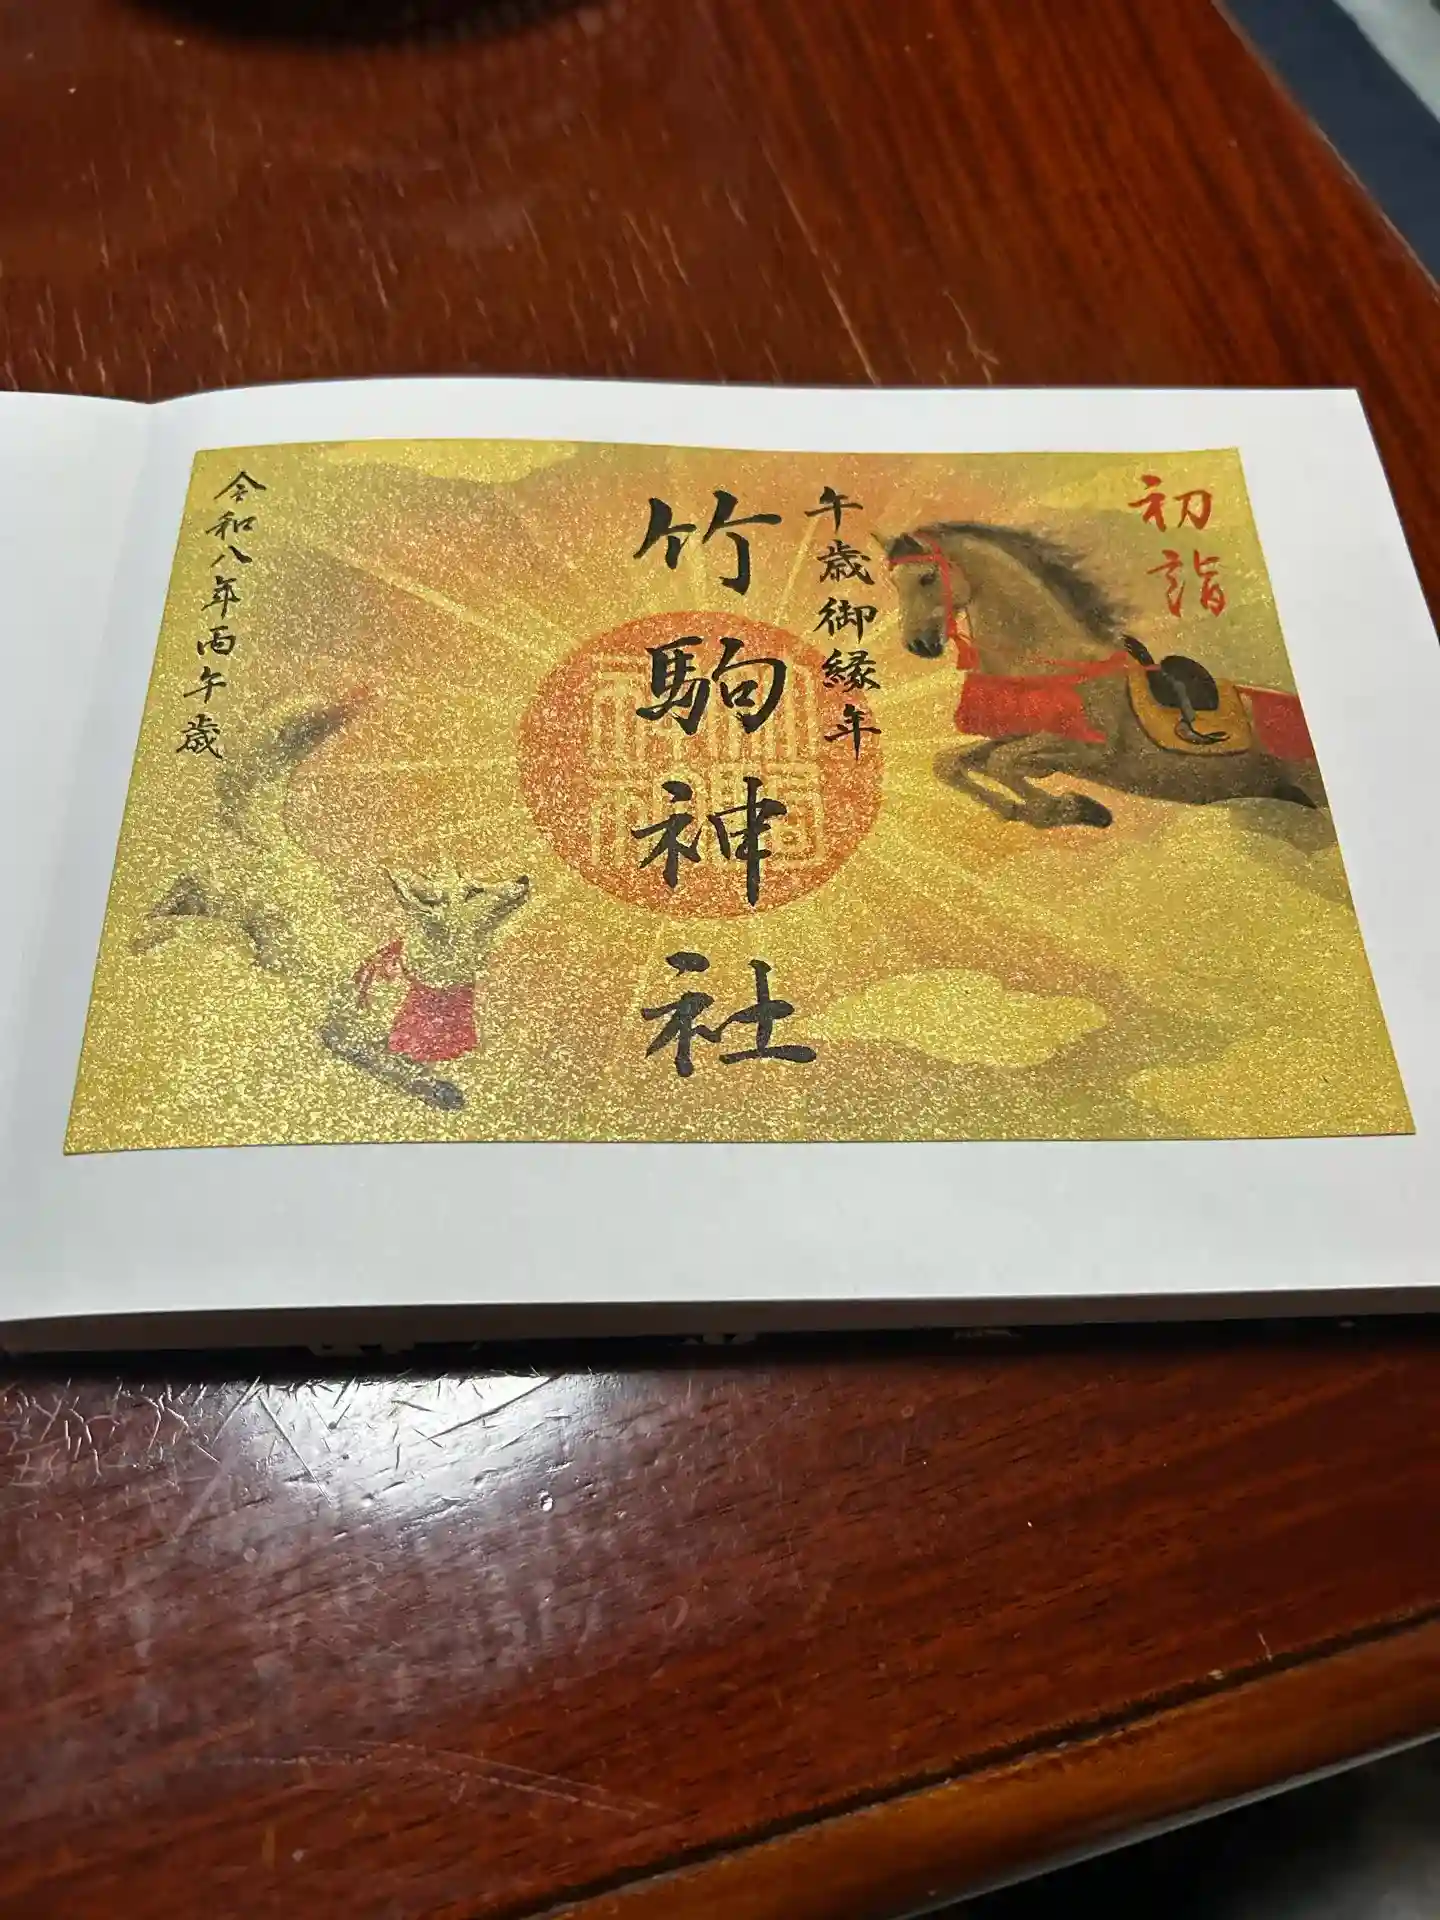 初詣
午歳御縁年
竹駒神社
令和八年丙午歳
竹駒
神社